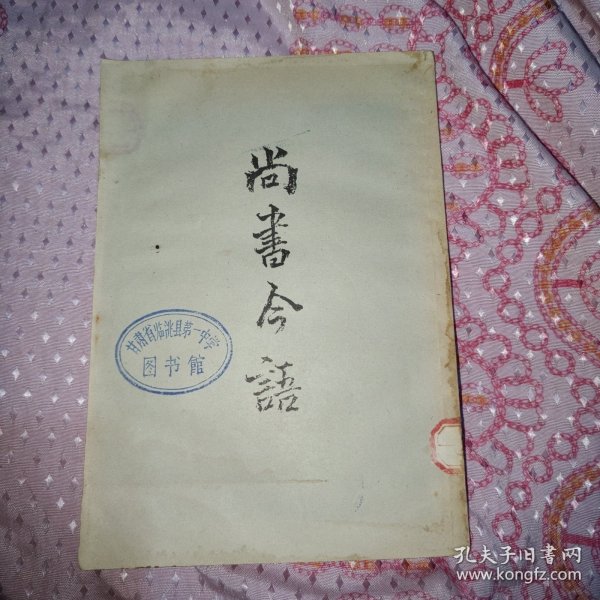 尚書今語
甘肃省临洮县第一中学
图书館
孔夫子旧书网
www.kongfz.com